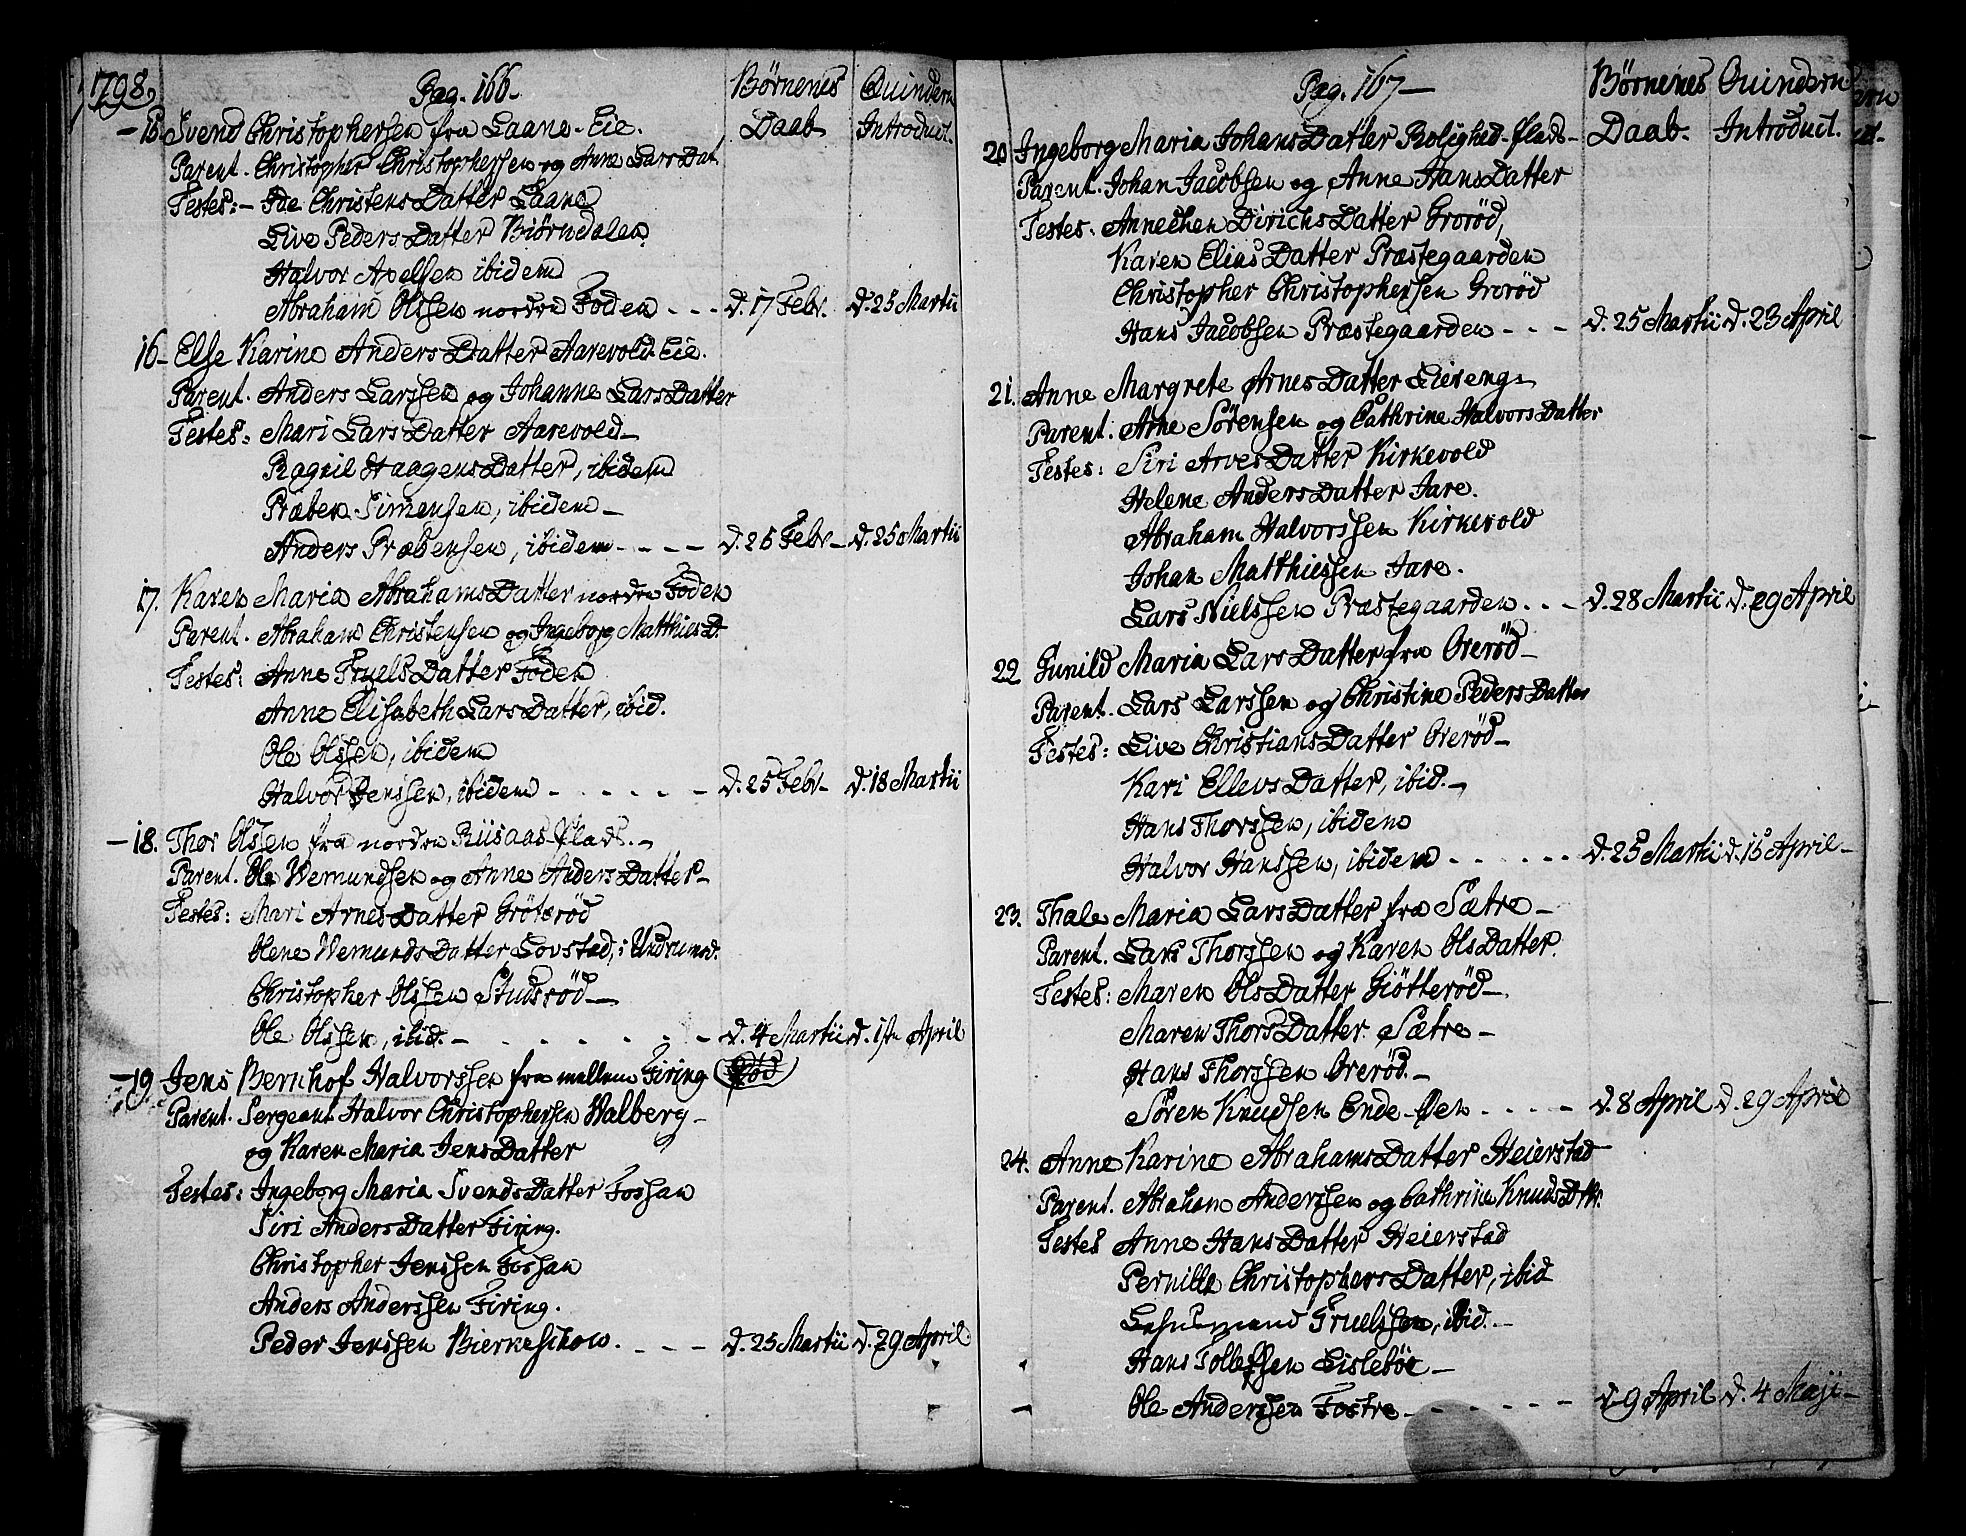 1798.
Pag. 166.
Børnenes Daab
Quindern Introduct.
15. Svend Christophersen fra Laane-Eie.
Parent. Christopher Christophersen og Anne LarsDat.
Testes:- Ide ChristensDatter Laane
Live PedersDatter Biørndalen
Halvor Axelsen ibidem
Abraham Olssen nordre Foden - - - d. 17 Febr. d. 25 Martii
16- Else Karine AndersDatter Aarevold-Eie.
Parent. Anders Larssen og Johanne LarsDatter
Testes: Mari LarsDatter Aarevold-
Ragnil HaagensDatter, ibidem
Præben Simensen, ibidem-
Anders Præbensen, ibidem- - - - d. 25 Febr- d. 25 Martii
17. Karen Maria AbrahamsDatter nordre Foden
Parent. Abraham Christensen og Ingeborg MatthiesD.
Testes: Anne TruelsDatter Foden
Anne Elisabeth LarsDatter, ibid.
Ole Olssen, ibidem
Halvor Jenssen, ibidem - - - - - - d. 25 Febr- d. 18 Martii
-18. Thor Olssen fra nordre Riisaas-Plads.-
Parent. Ole Wemundsen og Anne AndersDatter-
Testes: Mari ArnesDatter Grøterød
Olene WemundsDatter Lovstad, i Undrumsd.
Christopher Olssen Stulsrød-
Ole Olssen, ibid. - - - - - - - d. 4 Martii d. 1ste April
-19. Jens Bernhof Halvorssen fra mellem Firing
Parent. Sergeant Halvor Christophersen Walberg-
og Karen Maria JensDatter
Testes: Ingeborg Maria SvendsDatter Fossan
Siri AndersDatter Firing.
Christopher Jenssen Fossan
Anders Anderssen Firing.
Peder Jenssen Bierkeschow. - - - d. 25 Martii d. 29 April
Pag. 167-
Børnenes Daab.
Quindern Introduct.
20 Ingeborg Maria JohansDatter Bolighed-Plads-
Parent. Johan Jacobsen og Anne HansDatter
Testes. Annechen DirichsDatter Grorød,
Karen EliasDatter Præstegaarden
Christopher Christophersen Grorød
Hans Jacobsen Præstegaarden - - - d. 25 Martii d. 23 April
21. Anne Margrete ArnesDatter Liereng-
Parent. Arne Sørensen og Cathrine HalvorsDatter
Testes: Siri ArvesDatter Kirkevold
Helene AndersDatter Jare.
Abraham Halvorssen Kirkevold
Johan Matthiessen Jare.
Lars Nielssen Præstegaarden. - - d. 28 Martii d. 29 April
22 Gunild Maria LarsDatter fra Orerød-
Parent. Lars Larssen og Christine PedersDatter
Testes: Live ChristiansDatter Orerød-
Kari EllevsDatter, ibid.-
Hans Thorssen, ibidem
Halvor Hanssen, ibidem - - - - - - d. 25 Martii d. 15 April-
23. Thale Maria LarsDatter fra Sætre-
Parent. Lars Thorssen og Karen OlsDatter.
Testes: Maren OlsDatter Giøtterød-
Maren ThorsDatter. Sætre-
Hans Thorssen Orerød.-
Søren Knudsen Ende - - - - d. 8 April d. 29 April
24. Anne Karine AbrahamsDatter Heierstad
Parent. Abraham Anderssen og Cathrine KnudsDttr.
Testes Anne HansDatter Heierstad
Pernille ChristophersDatter, ibid
Truelssen, ibid.-
Hans Tollefsen Lislebøe-
Ole Anderssen Fostre - - - - - d. 9 April d. 4 Maji-